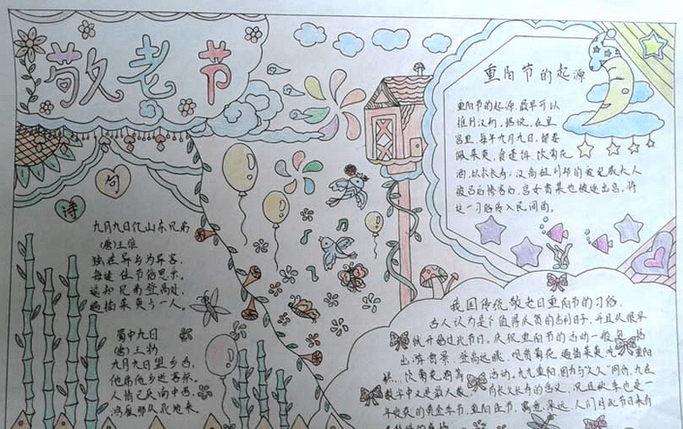 敬老节
诗句
九月九日忆山东兄弟
(唐)王维
独在异乡为异客,
每逢佳节倍思亲。
遥知兄弟登高处,
遍插茱萸少一人。
蜀中九日
(唐)王勃
九月九日望乡台,
他席他乡送客杯。
人情已厌南中苦,
鸿雁那从北地来。
重阳节的起源
重阳节的起源,最早可以
推到汉初,据说,在皇
宫里,每年九月九日,都要
佩茱萸,食蓬饵,饮菊花
酒,以求长寿;汉高祖刘邦的爱妃戚夫人
被吕后惨害后,宫女贾某也被逐出宫,将
这一习俗传入民间的。
我国传统敬老日重阳节的习俗
古人认为是个值得庆贺的吉利日子,并且从很早
就开始过此节日。庆祝重阳节的活动一般包括
出游赏景、登高远眺、观赏菊花、遍插茱萸、吃重阳
糕、饮菊花酒等活动。九九重阳,因为与"久久"同音,九在
数字中又是最大数,有长久长寿的含义,况且秋季也是一
年收获的黄金季节,重阳佳节,寓意深远,人们对此节日